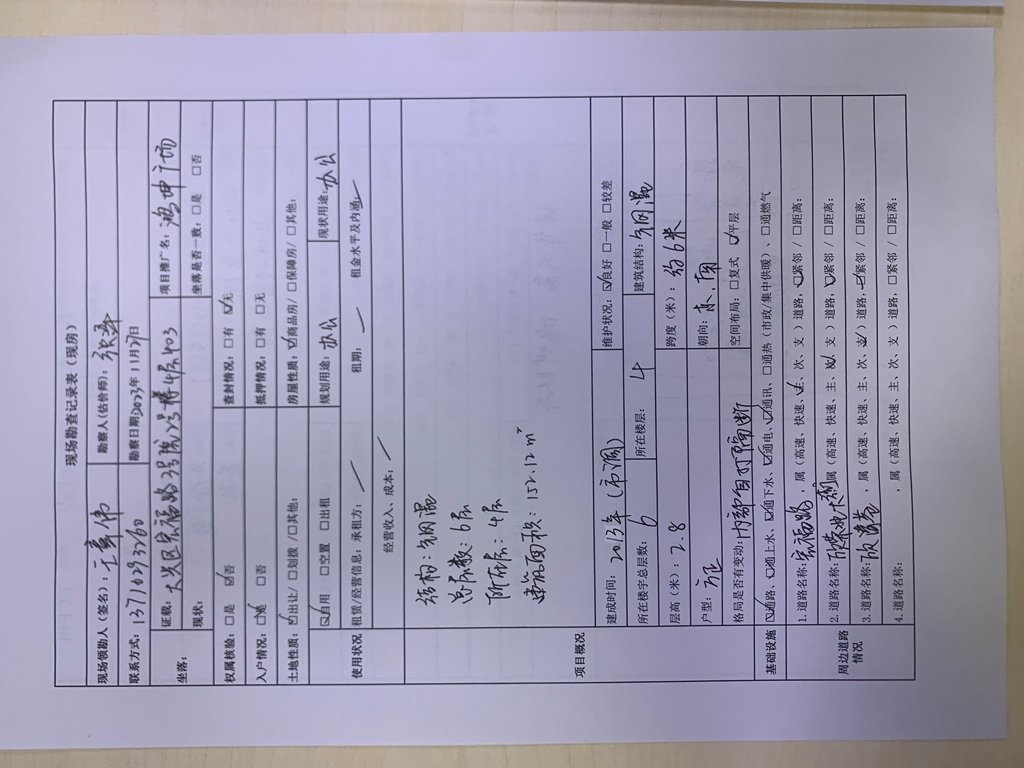 现场勘查记录表（现房）
现场领勘人（签名）：王 伟 勘察人（估价师）：张
联系方式：13710893760 勘察日期2023年11月27日
坐落： 证载：大兴区宏福路3号院12号楼4层403 项目推广名：鸿坤广场
现状： 坐落是否一致：□是 □否
权属核验：□是 ☑否 查封情况：□有 ☑无
入户情况：☑是 □否 抵押情况：□有 □无
土地性质：☑出让/□划拨/□其他： 房屋性质：☑商品房/□保障房/□其他：
使用状况 ☑自用 □空置 □出租 规划用途：办公 现状用途：办公
租赁/经营信息：承租方：— 租期：— 租金水平及内涵：—
经营收入、成本：—
项目概况
结构：钢混
总层数：6层
所在层：4层
建筑面积：152.12㎡
建成时间：2013年（市调） 维护状况：☑良好 □一般 □较差
所在楼宇总层数：6 所在楼层：4 建筑结构：钢混
层高（米）：2.8 跨度（米）：约6米
户型：方正 朝向：东.南
格局是否有变动：内部自打隔断 空间布局：□复式 ☑平层
基础设施 ☑通路、☑通上水、☑通下水、☑通电、☑通讯、□通热（市政/集中供暖）、□通燃气
周边道路情况
1. 道路名称：宏福路，属（高速、快速、主、次、支）道路，☑紧邻/□距离：
2. 道路名称：欣荣，属（高速、快速、主、次、支）道路，☑紧邻/□距离：
3. 道路名称：欣，属（高速、快速、主、次、支）道路，☑紧邻/□距离：
4. 道路名称： ，属（高速、快速、主、次、支）道路，□紧邻/□距离：